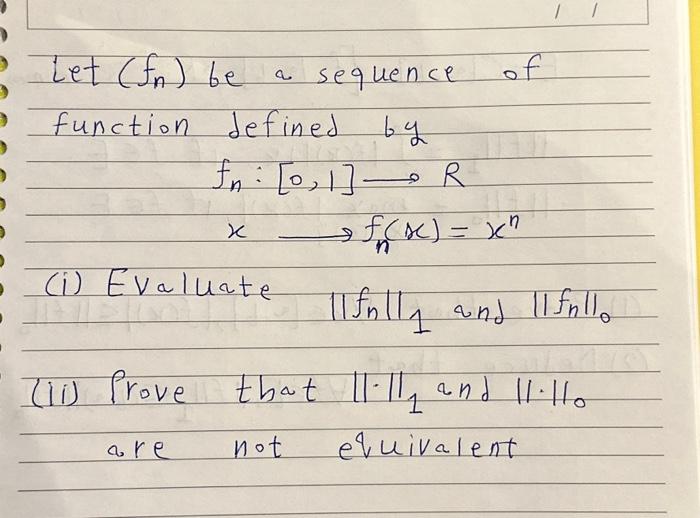 Let (fn) be a sequence of
function defined by
fn : [0,1] → R
x → fn(x) = xⁿ
(i) Evaluate ||fn||₁ and ||fn||₀
(ii) Prove that ||·||₁ and ||·||₀
are not equivalent